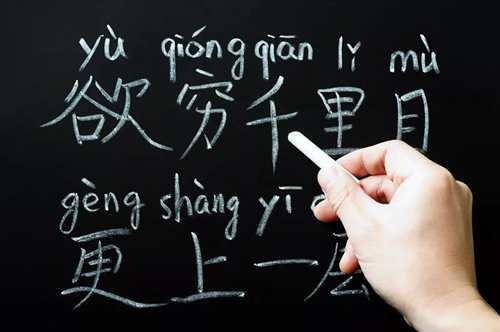 yù qióng qiān lǐ mù
欲穷千里目
gèng shàng yī
更上一层